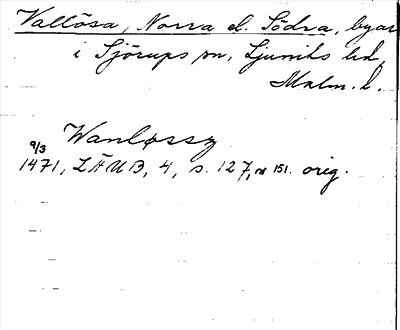 Vallösa, Norra o. Södra, byar
i Sjörups sn, Ljunits hd,
Malm. l.
Wanløssy
9/3
1471, LÄUB, 4, s. 127, nr 151. orig.